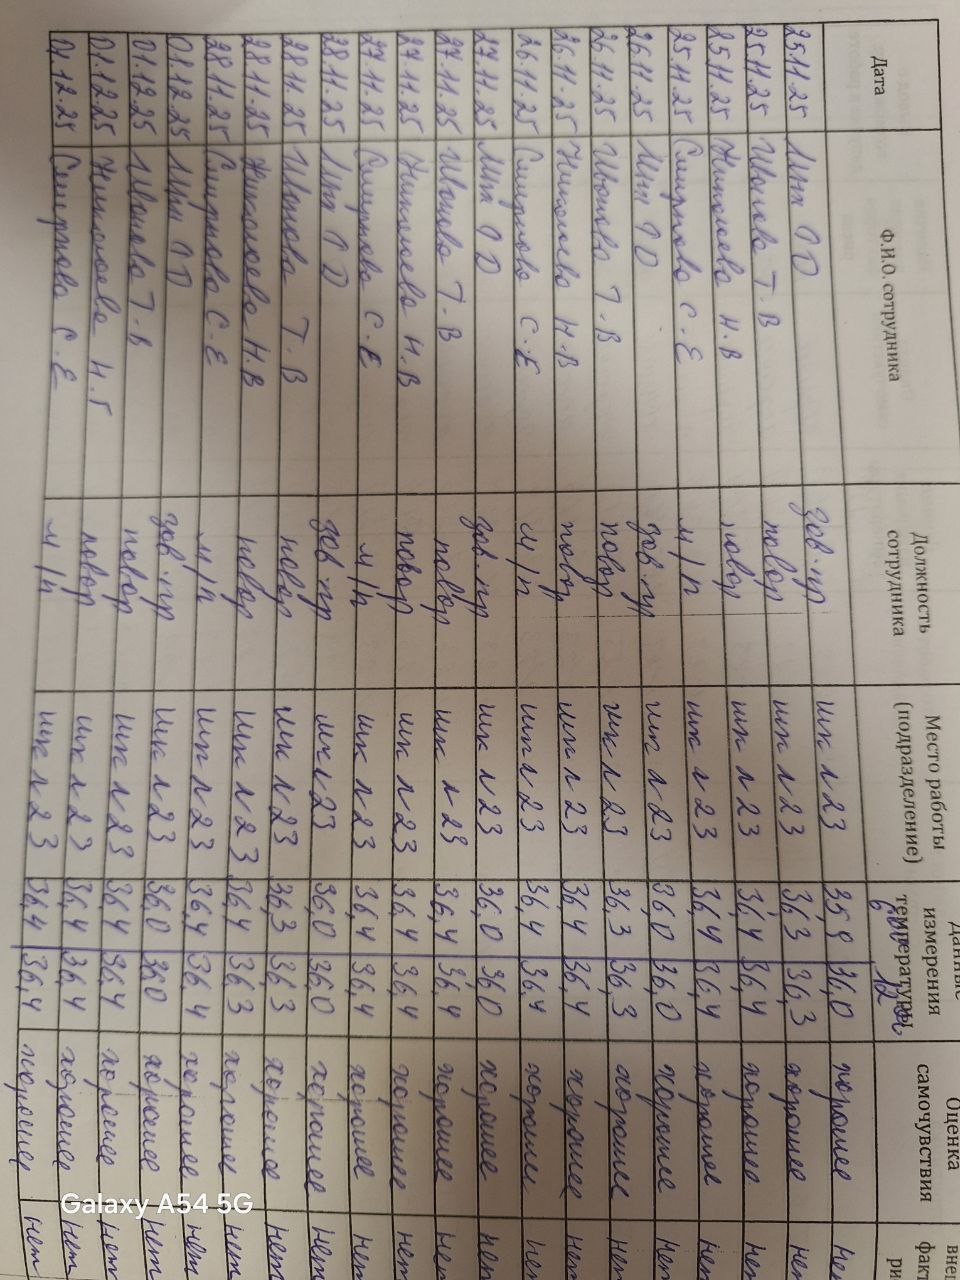 Дата Ф.И.О. сотрудника Должность сотрудника Место работы (подразделение) Данные измерения температуры Оценка самочувствия
25.11.25 зав. пр шк л 23 35,9 36,0 хорошее
25.11.25 Иванова Т. В повар шк л 23 36,3 36,3 хорошее
25.11.25 Николаева Н. В повар шк л 23 36,4 36,4 хорошее нет
25.11.25 Смирнова С. Е м/п шк л 23 36,4 36,4 хорошее нет
26.11.25 зав. пр шк л 23 36,0 36,0 хорошее нет
26.11.25 Иванова Т. В повар шк л 23 36,3 36,3 хорошее нет
26.11.25 Николаева Н. В повар шк л 23 36,4 36,4 хорошее нет
26.11.25 Смирнова С. Е м/п шк л 23 36,4 36,4 хорошее нет
27.11.25 зав. пр шк л 23 36,0 36,0 хорошее нет
27.11.25 Иванова Т. В повар шк л 23 36,4 36,4 хорошее нет
27.11.25 Николаева Н. В повар шк л 23 36,4 36,4 хорошее нет
27.11.25 Смирнова С. Е м/п шк л 23 36,4 36,4 хорошее нет
28.11.25 зав. пр шк л 23 36,0 36,0 хорошее нет
28.11.25 Иванова Т. В повар шк л 23 36,3 36,3 хорошее нет
28.11.25 Николаева Н. В повар шк л 23 36,4 36,3 хорошее нет
28.11.25 Смирнова С. Е м/п шк л 23 36,4 36,4 хорошее нет
01.12.25 зав. пр шк л 23 36,0 36,0 хорошее нет
01.12.25 Иванова Т. В повар шк л 23 36,4 36,4 хорошее нет
01.12.25 Николаева Н. Г повар шк л 23 36,4 36,4 хорошее нет
01.12.25 Смирнова С. Е м/п шк л 23 36,4 36,4 хорошее нет
Galaxy A54 5G